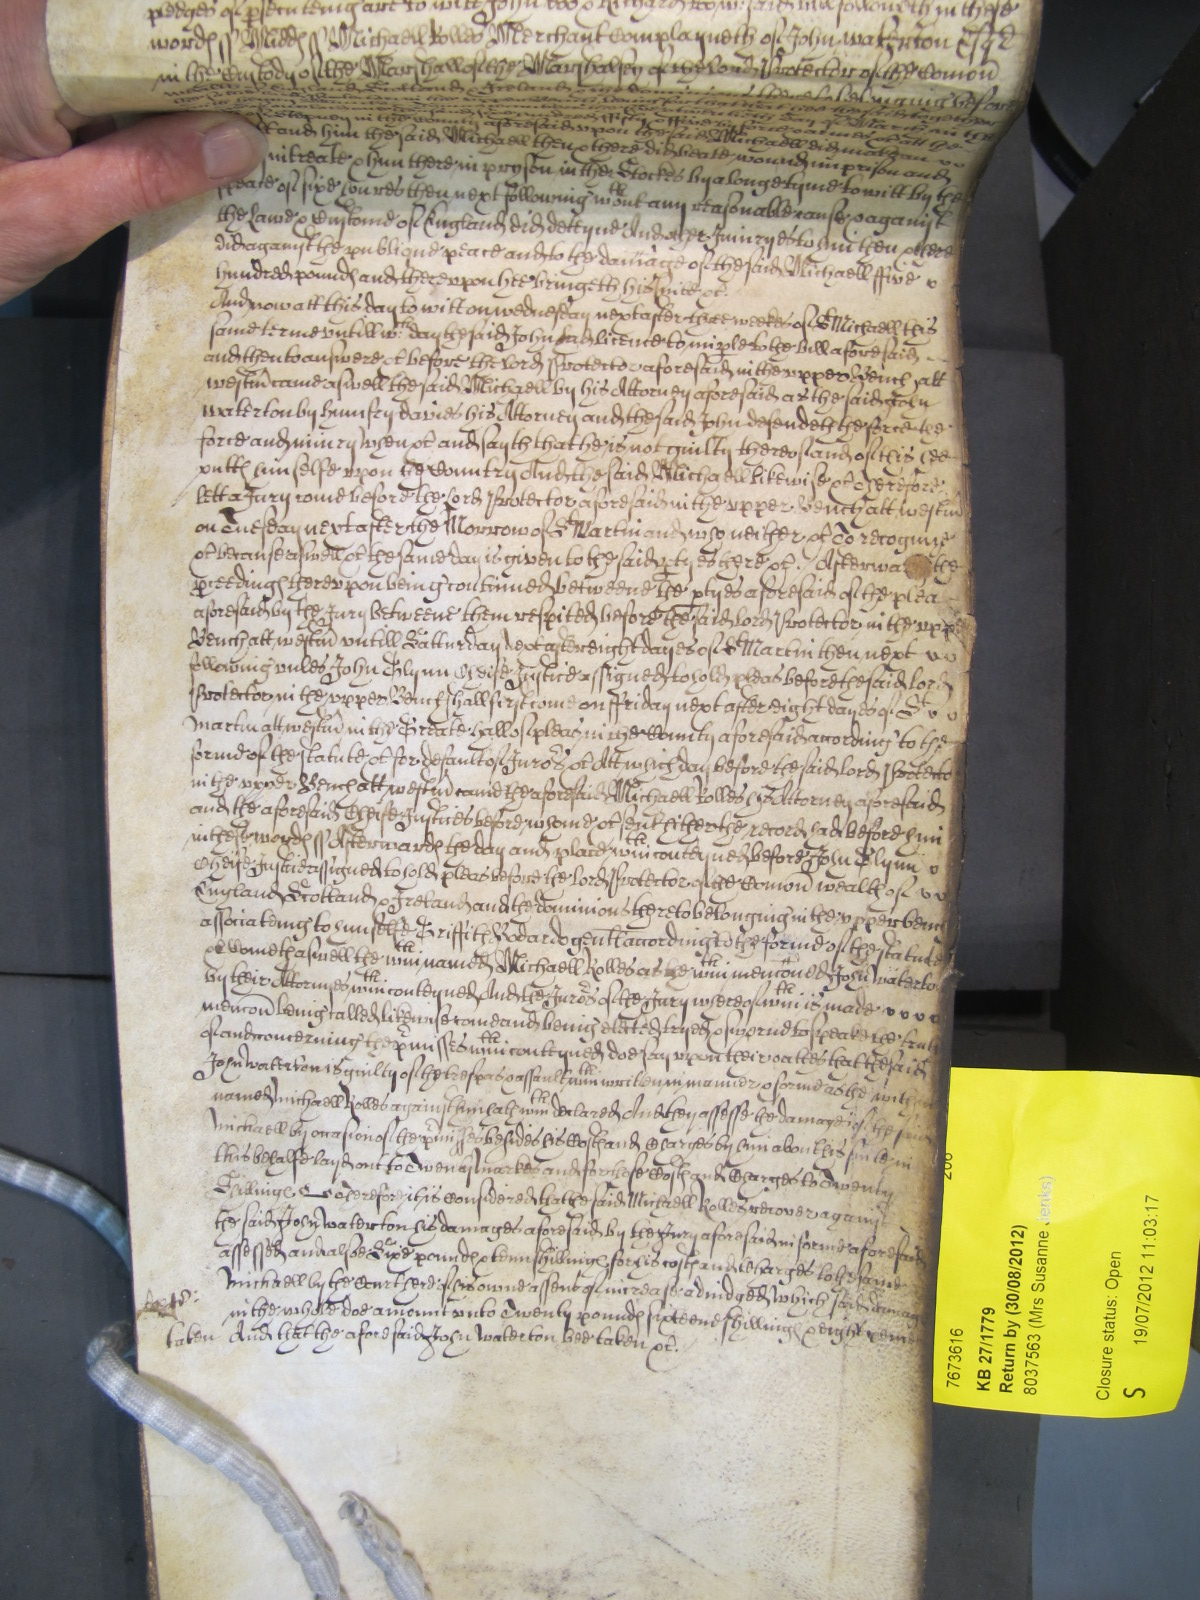 pledges of psecuteing are to witt John Doo & Richard Roo w:ch said Bill followeth in these
wordes ss Midds ss Michaell Rolles Merchant Complayneth of John Waterton Esq
in the Custody of the Marshall of the Marshalsey of the Lord Protector of the Comon
upon the said Michaell did make an
and him the said Michaell then & there did beate wound imprison and
intreate & him there in pryson in the Stockes by a longe tyme to witt by the
space of sixe houres then next following wthout any reasonable cause & against
the Lawe & Custome of England did deteyne And other Iniuryes to him then & there
did against the publique peace and to the damage of the said Michaell ffive
hundred pounds and thereupon hee bringeth his suite &c
And now att this day to witt on wednesday next after three weekes of St Michaell this
same terme untill wch day the said John had licence to imparle to the bill aforesaid
and then to answere &c before the Lord Protector aforesaid in the upper Bench att
westm came aswell the said Michaell by his Attorney aforesaid as the said John
Waterton by Humfry Davies his Attorney and the said John defendeth the force &
force and iniury when &c and sayth that he is not guilty thereof and of this hee
putts himselfe upon the Country And the said Michaell likewise &c Therefore
lett a Jury come before the Lord Protector aforesaid in the upper Bench att westm
on Tuesday next after the Morrow of St Martin and who neither &c To recognize
&c because aswell &c the same day is given to the said ptyes there &c. Afterwards the
pceedings thereupon being continued betweene the ptyes aforesaid of the plea
aforesaid by the Jury betweene them respited before the said Lord Protector in the upp
Bench att westm untill Satturday next after eight dayes of St Martin then next
following unles John Glynn Cheife Justice assigned to hold pleas before the said Lord
Protector in the upper Bench shall first come on ffriday next after eight dayes of St
Martin att westm in the Greate hall of pleas in the County aforesaid according to the
forme of the Statute &c for default of Juro:s &c Att which day before the said Lord Protecto
in the upper Bench att westm came the aforesaid Michaell Rolles by his Attorney aforesaid
and the aforesaid Cheife Justice before whome &c sent hither the record had before him
in these wordes ss Afterwards the day and place wthin conteyned before John Glynn
Cheife Justice assigned to hold pleas before the Lord Protector of the Comon wealth of
England Scotland & Ireland and the dominions thereto belonging in the upper benc
associateing to himselfe Griffith Bodardo gent according to the forme of the Statute
&c Cometh aswell the wthin named Michaell Rolles as the wthin menconed John Waterto
by their Attorneys wthin conteyned And the Juro:s of the Jury whereof wthin is made
mencon being called likewise come and being elected tryed & sworne to speake the truth
of and concerning the pmisses wthin conteyned doe say upon their oathes that the said
John Waterton is guilty of the trespas & assault wthin written in manner & forme as the within
named Michaell Rolles against him hath wthin declared And they assesse the damages of the said
Michaell by occasion of the pmisses besides his Costs and Charges by him about his suite in
this behalfe layd out to Twenty markes and for those Costs and Charges to Twenty
Shillings Therefore it is considered that the said Michaell Rolles recover against
the said John Waterton his damages aforesaid by the Jury aforesaid in forme aforesaid
assessed and alsoe Sixe pounds & tenn shillings for his costs and Charges to the same
Michaell by the Court here of his owne assent of increase adiudged which said damag
in the whole doe amount unto Twenty pounds sixteene shillings & eight pence
taken And that the aforesaid John Waterton bee taken &c.
7673616
KB 27/1779
Return by (30/08/2012)
8037563 (Mrs Susanne Jenks)
Closure status: Open
S 19/07/2012 11:03:17